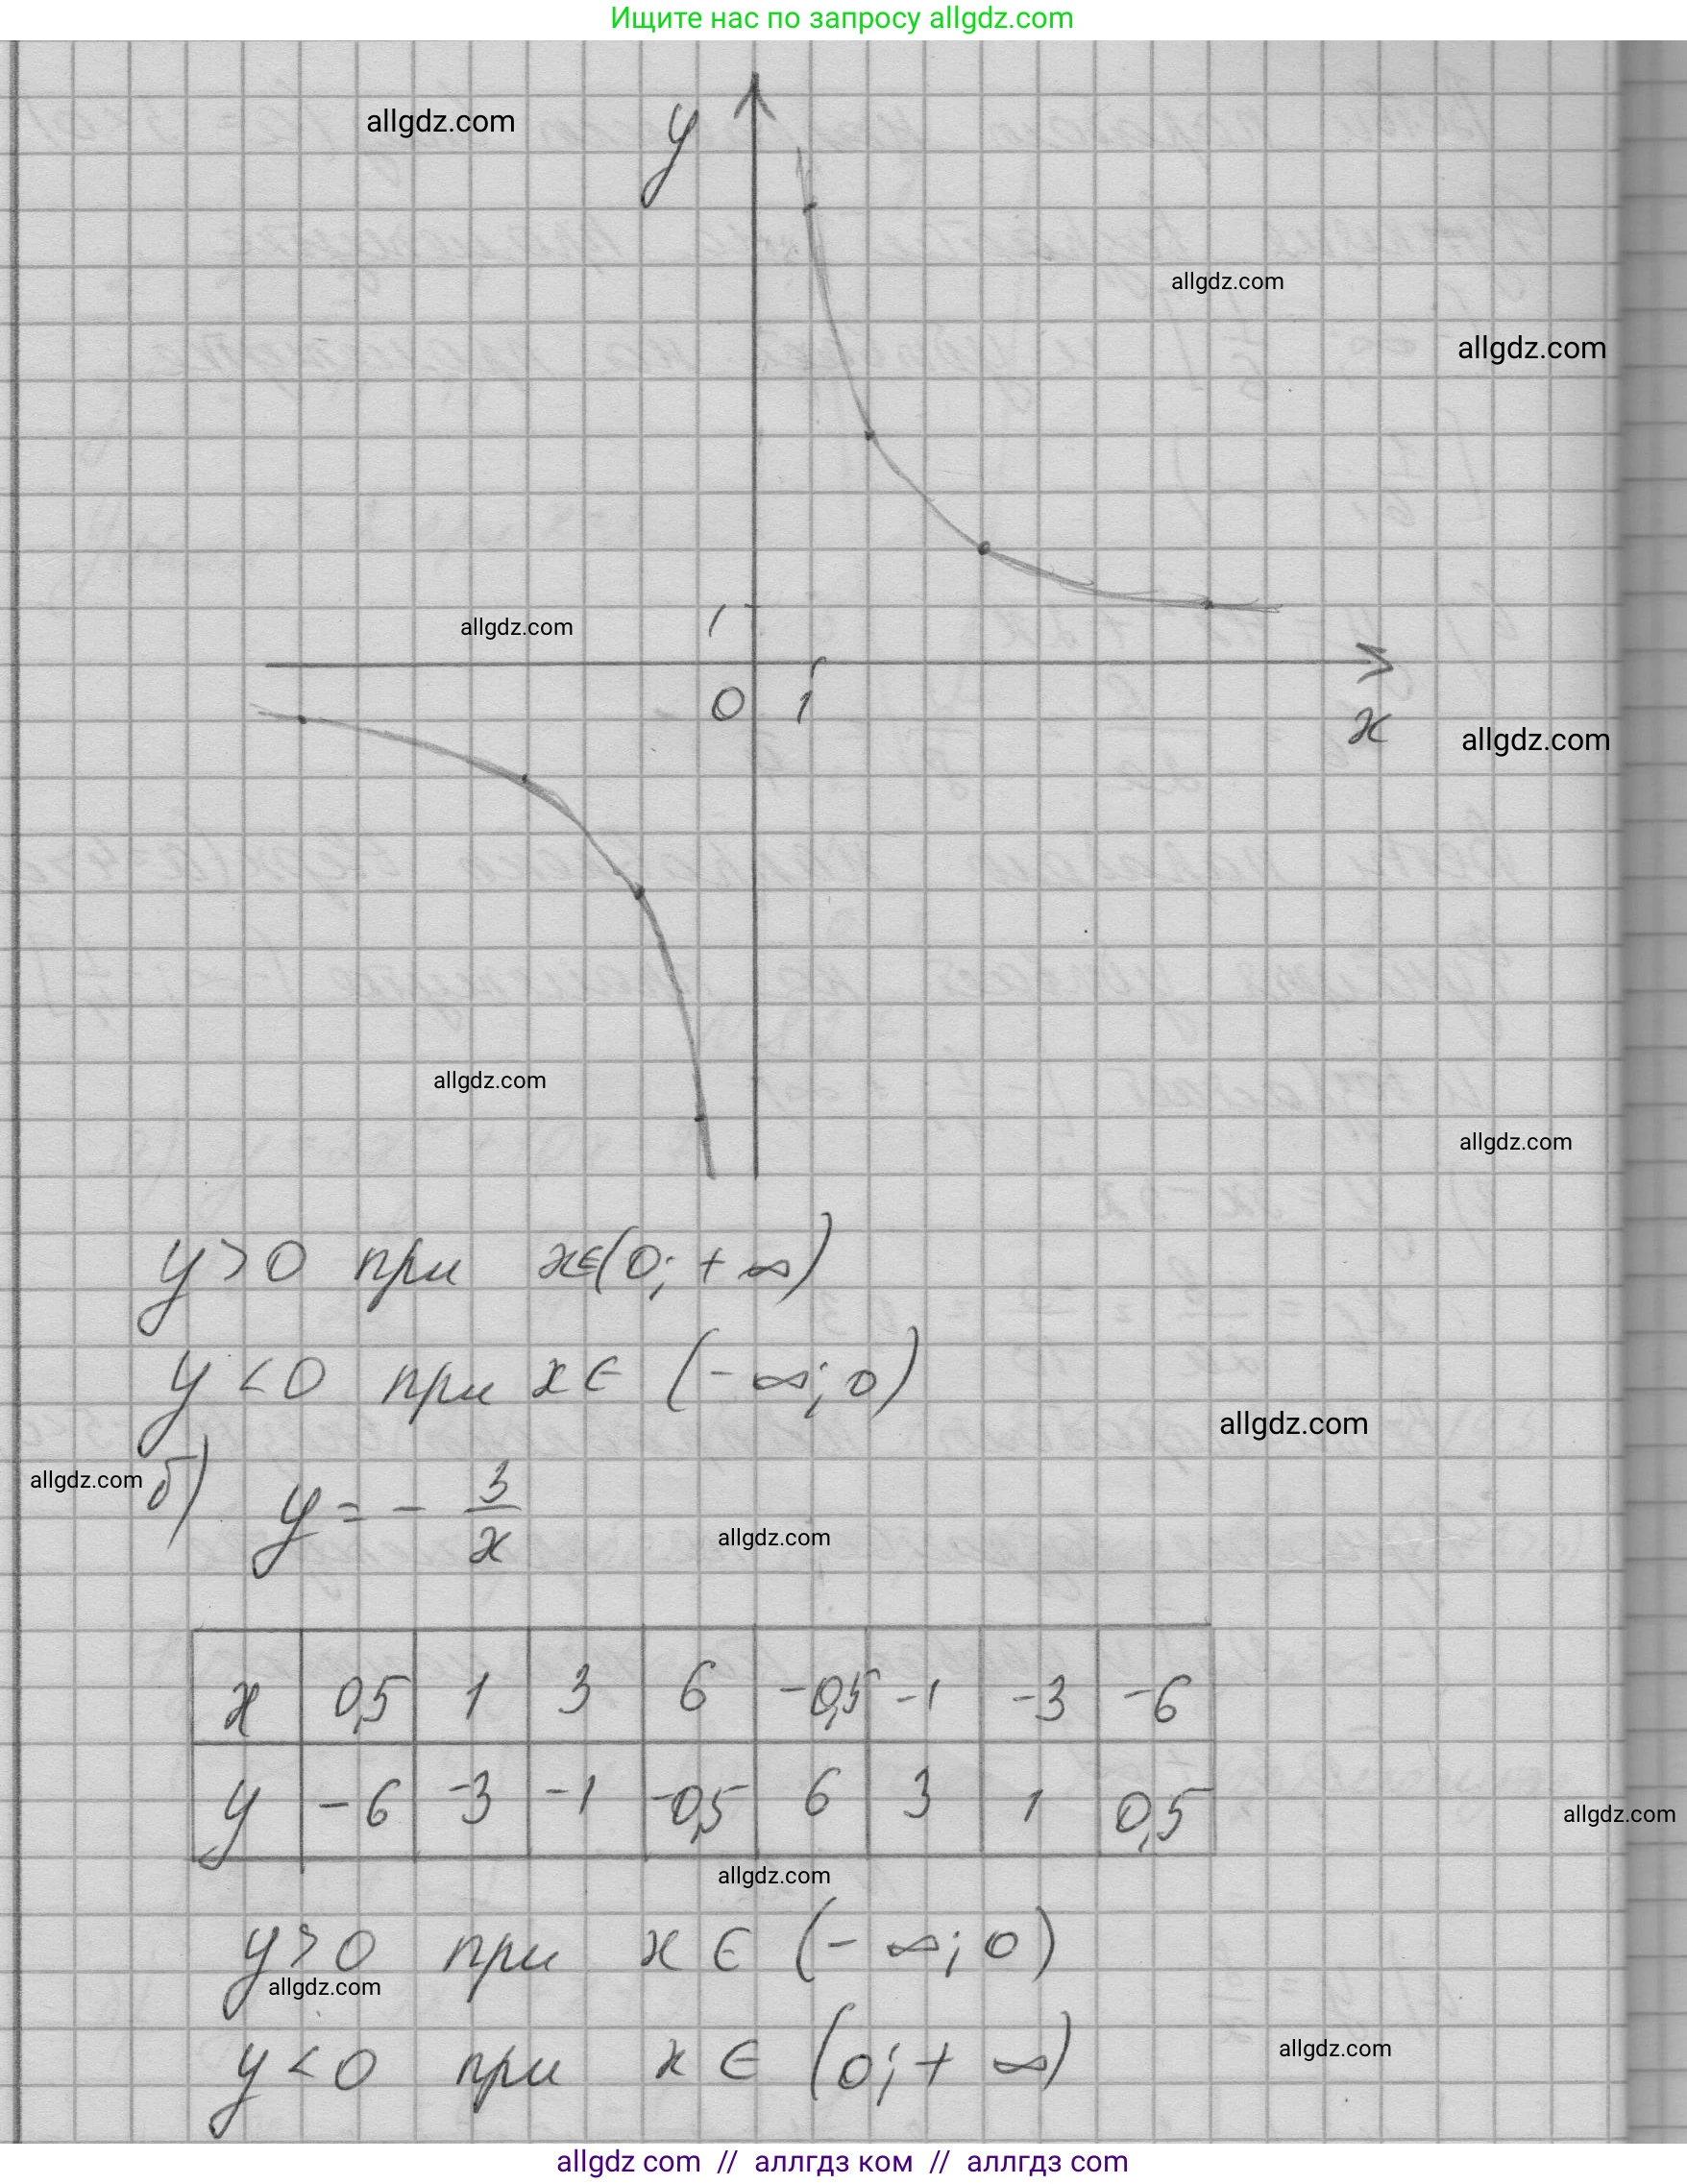 Ищите нас по запросу allgdz.com
allgdz.com
y
allgdz.com
allgdz.com
allgdz.com
1
0 1
x
allgdz.com
allgdz.com
allgdz.com
y > 0 при x∈(0; + ∞)
y < 0 при x ∈ (- ∞; 0)
allgdz.com
allgdz.com
б) y = - 3/x
allgdz.com
x 0,5 1 3 6 -0,5 -1 -3 -6
y -6 -3 -1 -0,5 6 3 1 0,5
allgdz.com
allgdz.com
y > 0 при x ∈ (- ∞; 0)
allgdz.com
y < 0 при x ∈ (0; + ∞)
allgdz.com
allgdz com // аллгдз ком // аллгдз com